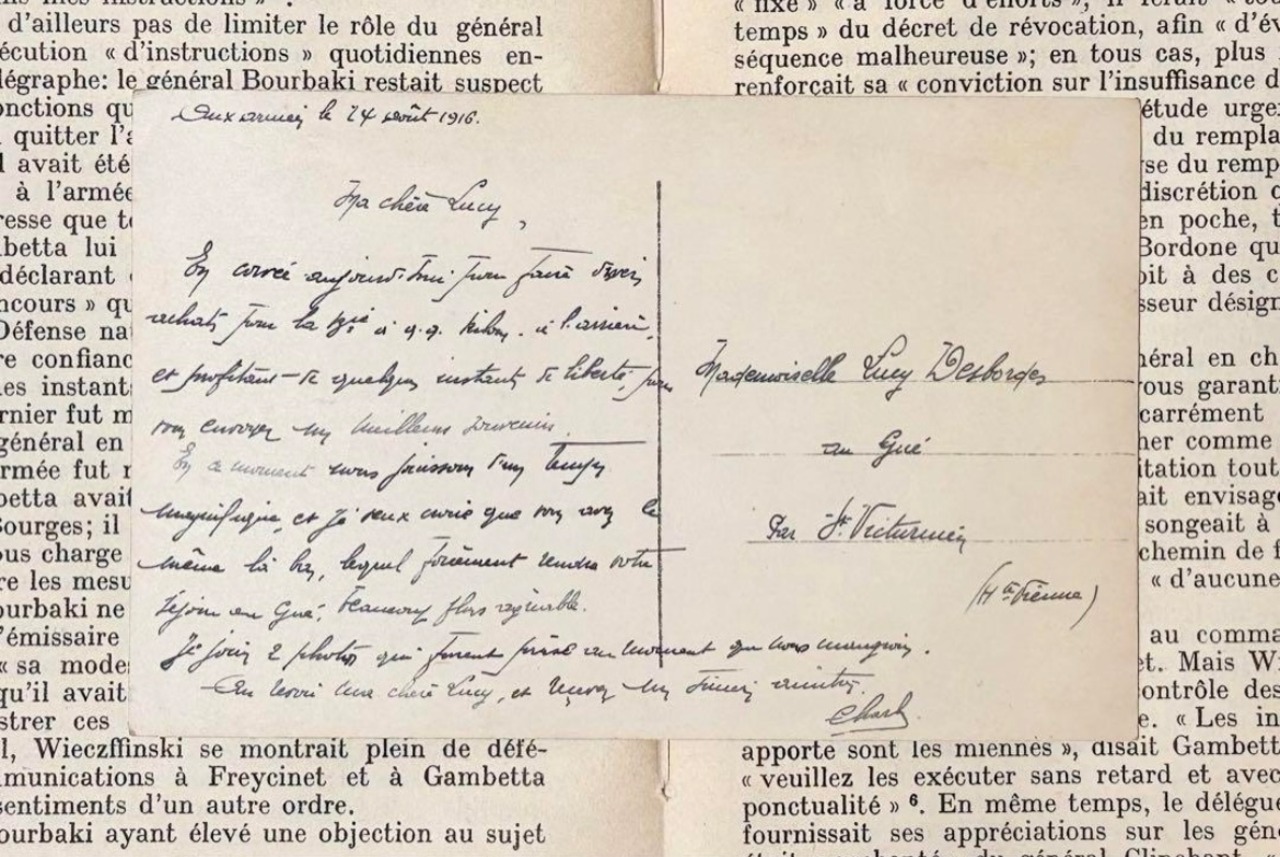 ums mes instructions » .
d'ailleurs pas de limiter le rôle du général
écution « d'instructions » quotidiennes en-
légraphe: le général Bourbaki restait suspect
onctions qu
quitter l'a
l avait été
à l'armée
resse que te
betta lui
déclarant
ncours » qu
Défense na
re confianc
les instants
rnier fut m
général en
rmée fut r
betta avait
Bourges; il
ous charge
re les mesu
ourbaki ne
'émissaire
« sa modes
qu'il avait
strer ces
l, Wieczffinski se montrait plein de défé-
munications à Freycinet et à Gambetta
sentiments d'un autre ordre.
ourbaki ayant élevé une objection au sujet
Aux armées le 24 août 1916.
Ma chère Lucy,
En corvée aujourd'hui pour faire divers
achats pour la Cie à q.q. kilom. à l'arrière,
et profitant de quelques instants de liberté, pour
vous envoyer mes meilleurs souvenirs.
En ce moment nous jouissons d'un temps
magnifique, et je veux croire que vous avez le
même là bas, lequel forcément rendra votre
séjour au Gué, beaucoup plus agréable.
Je joins 2 photos qui furent prises au moment que nous mangions.
Au revoir ma chère Lucy, et recevez mes sincères amitiés.
Charles
Mademoiselle Lucy Desborde
au Gué
Par St Victurnien
(Hte Vienne)
« fixe » « à force d'efforts », il ferait « tou
temps » du décret de révocation, afin « d'év
séquence malheureuse »; en tous cas, plus
renforçait sa « conviction sur l'insuffisance d
étude urge
du rempla
se du remp
discrétion
en poche, t
Bordone qu
oit à des c
sseur désign
néral en ch
vous garant
carrément
ner comme
itation tout
ait envisag
songeait à
chemin de f
« d'aucune
au comma
et. Mais W
ontrôle des
e. « Les in
apporte sont les miennes », disait Gambett
« veuillez les exécuter sans retard et avec
ponctualité » 6. En même temps, le délégué
fournissait ses appréciations sur les gén
du général Clinchant